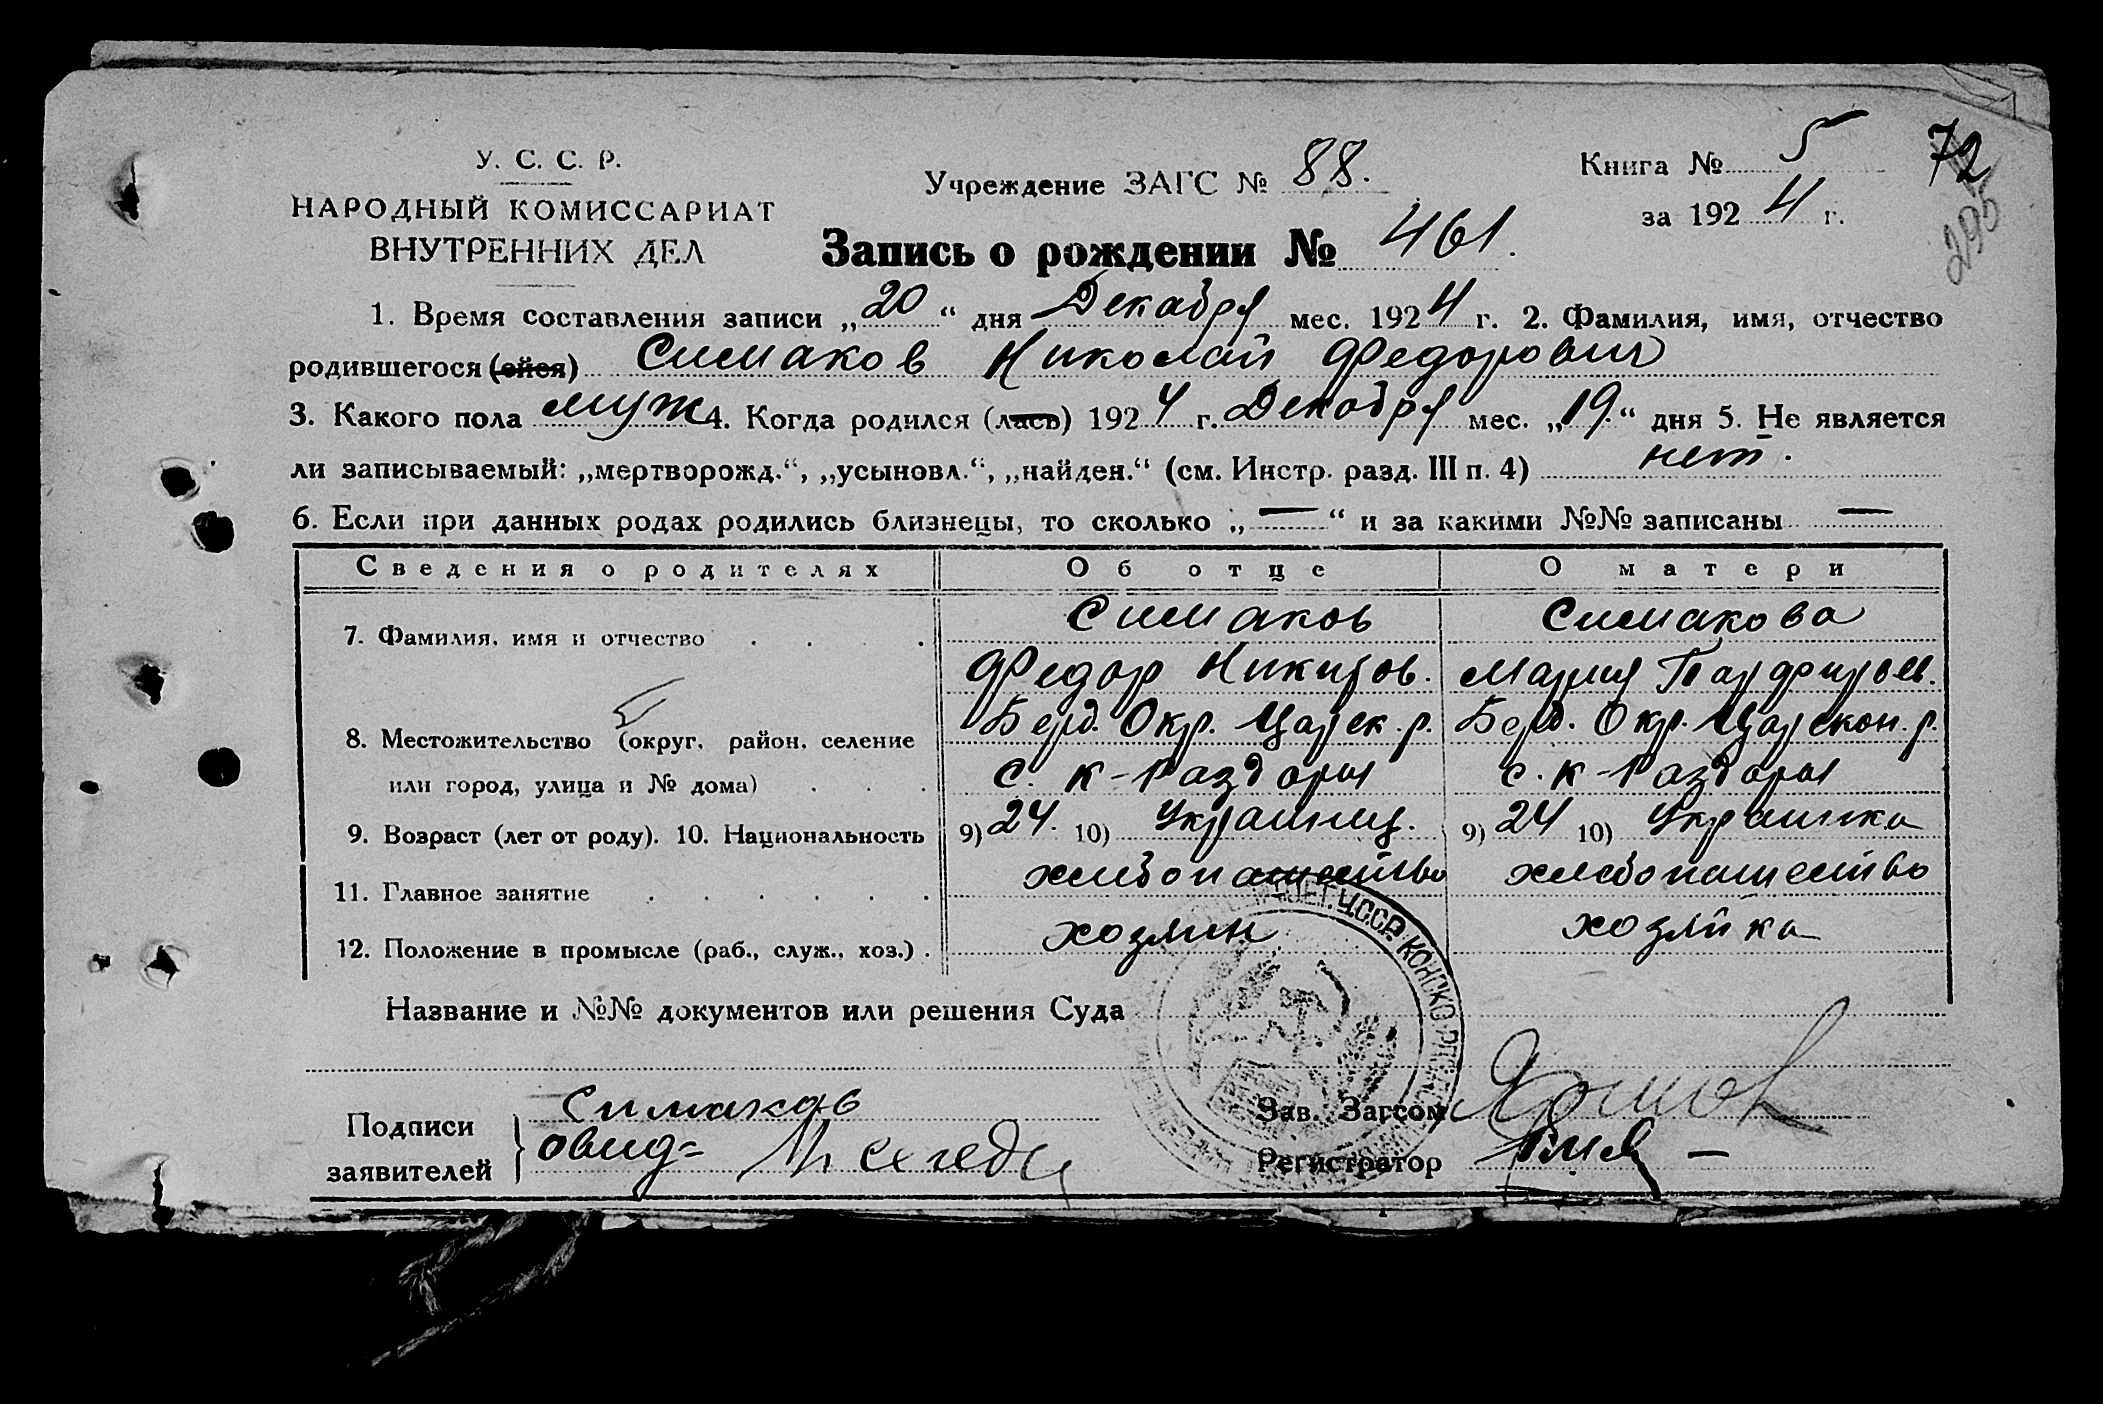 У. С. С. Р.
НАРОДНЫЙ КОМИССАРИАТ
ВНУТРЕННИХ ДЕЛ
Учреждение ЗАГС № 88.
Книга № 5
за 1924 г.
72
295
Запись о рождении № 461.
1. Время составления записи „20“ дня Декабря мес. 1924 г. 2. Фамилия, имя, отчество
родившегося (ейся) Симаков Николай Федорович
3. Какого пола муж 4. Когда родился (лась) 1924 г. Декабря мес. „19.“ дня 5. Не является
ли записываемый: „мертворожд.“, „усыновл.“, „найден.“ (см. Инстр. разд. III п. 4) нет.
6. Если при данных родах родились близнецы, то сколько „—“ и за какими №№ записаны —
Сведения о родителях Об отце О матери
7. Фамилия, имя и отчество Симаков Симакова
Федор Никитов. Мария Парфирьев.
8. Местожительство (округ, район, селение Берд. Окр. Царек. р. Берд. Окр. Царекон. р.
или город, улица и № дома) с. К-Раздоры с. К-Раздоры
9. Возраст (лет от роду). 10. Национальность 9) 24. 10) Украинец. 9) 24 10) Украинка
11. Главное занятие хлебопашество хлебопашество
12. Положение в промысле (раб., служ., хоз.) хозяин хозяйка
Название и №№ документов или решения Суда
Подписи
заявителей
Симаков
Зав. Загсом
Регистратор